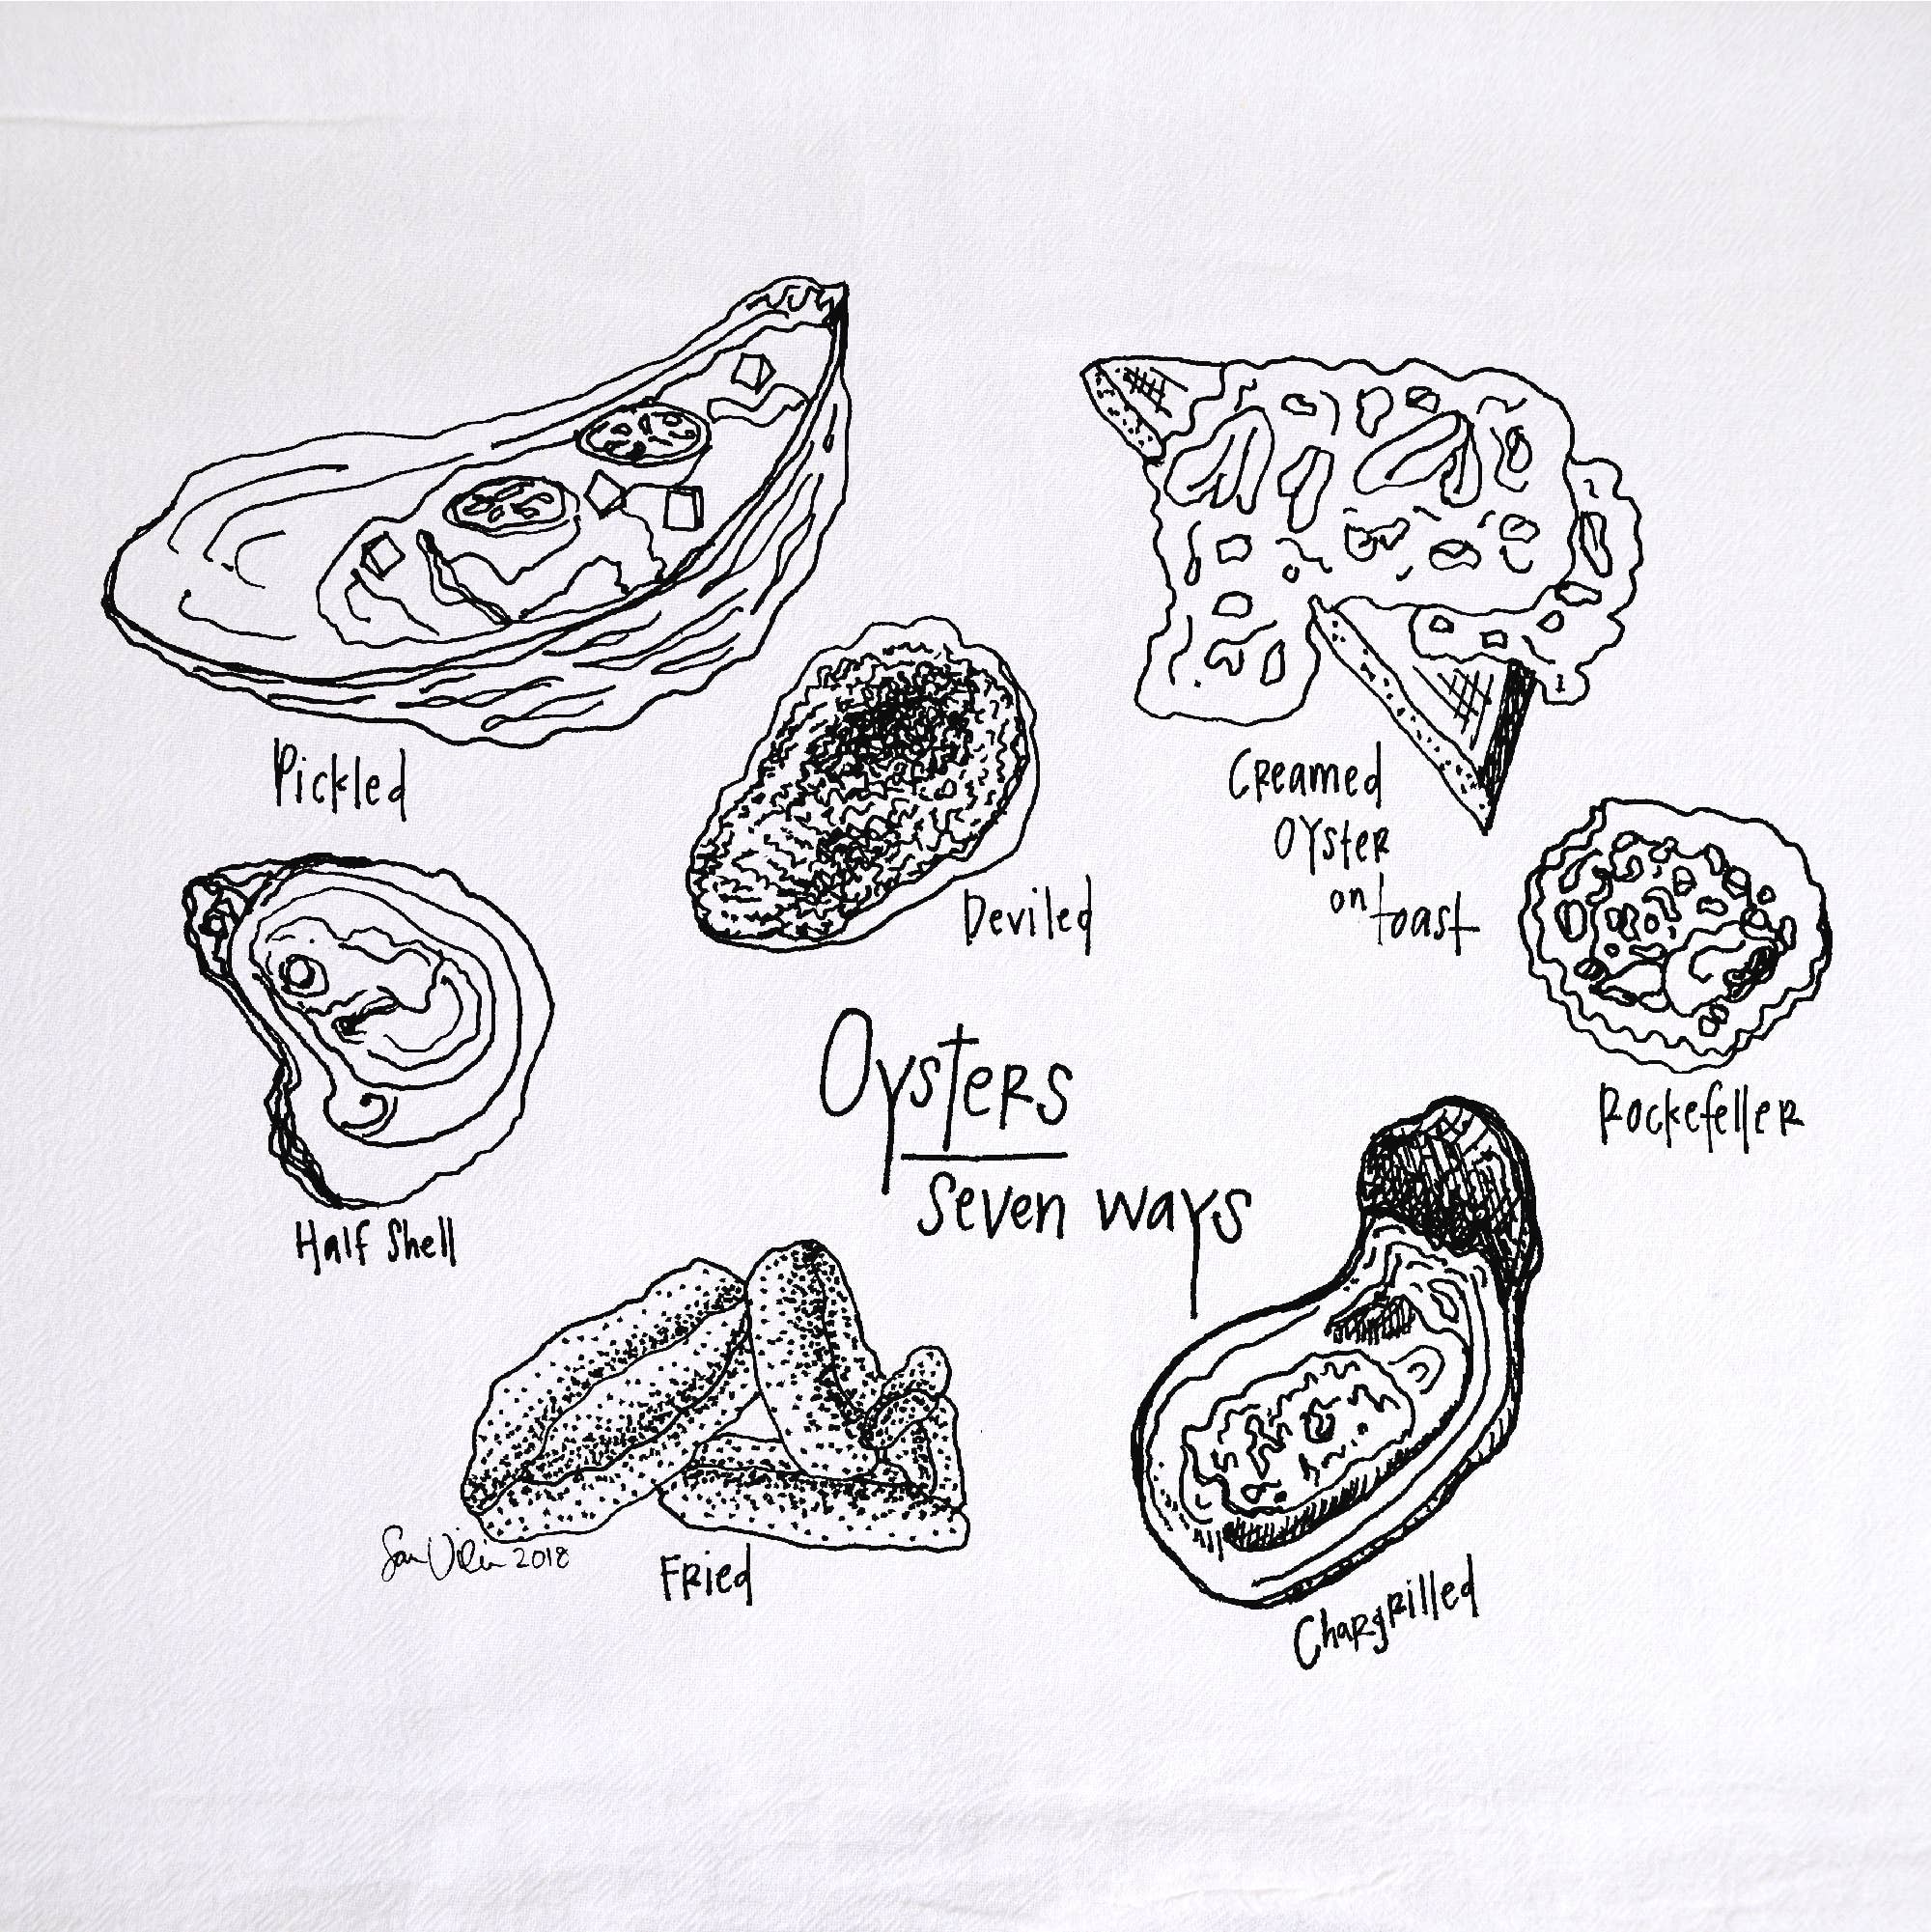 Pickled
Deviled
Creamed
Oyster
on
toast
Rockefeller
Half Shell
Oysters
Seven ways
Fried
Chargrilled
2018